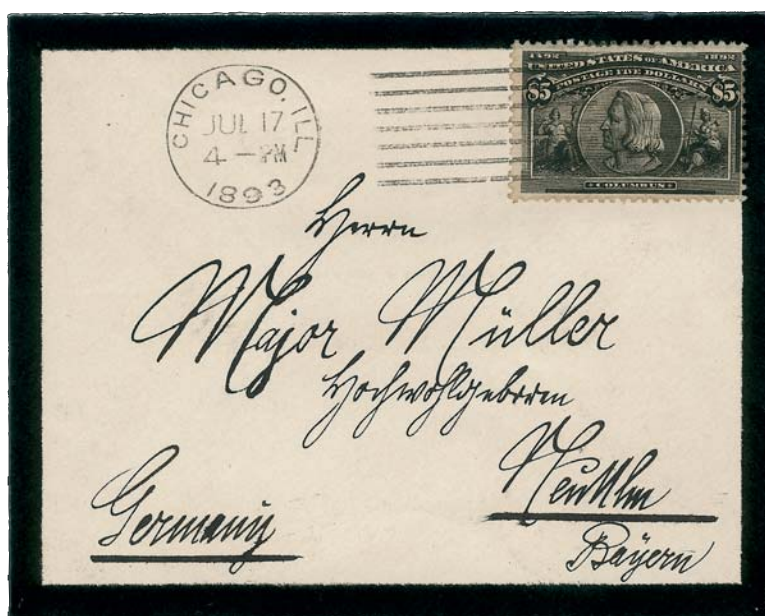 CHICAGO, ILL.
JUL 17
4 - PM
1893
1492 1892
UNITED STATES OF AMERICA
POSTAGE FIVE DOLLARS
$5 $5
COLUMBUS
Herrn
Major Müller
Hochwohlgeboren
Neu Ulm
Germany
Bayern